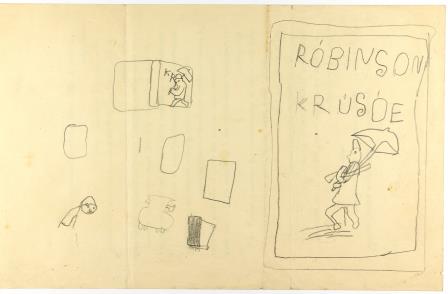 RÓBINSON
KRÚSÓE